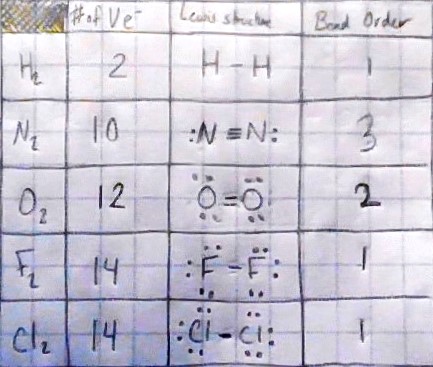 # of Ve⁻ Lewis structure Bond Order
H₂ 2 H - H 1
N₂ 10 :N≡N: 3
O₂ 12 O=O 2
F₂ 14 :F-F: 1
Cl₂ 14 :Cl-Cl: 1